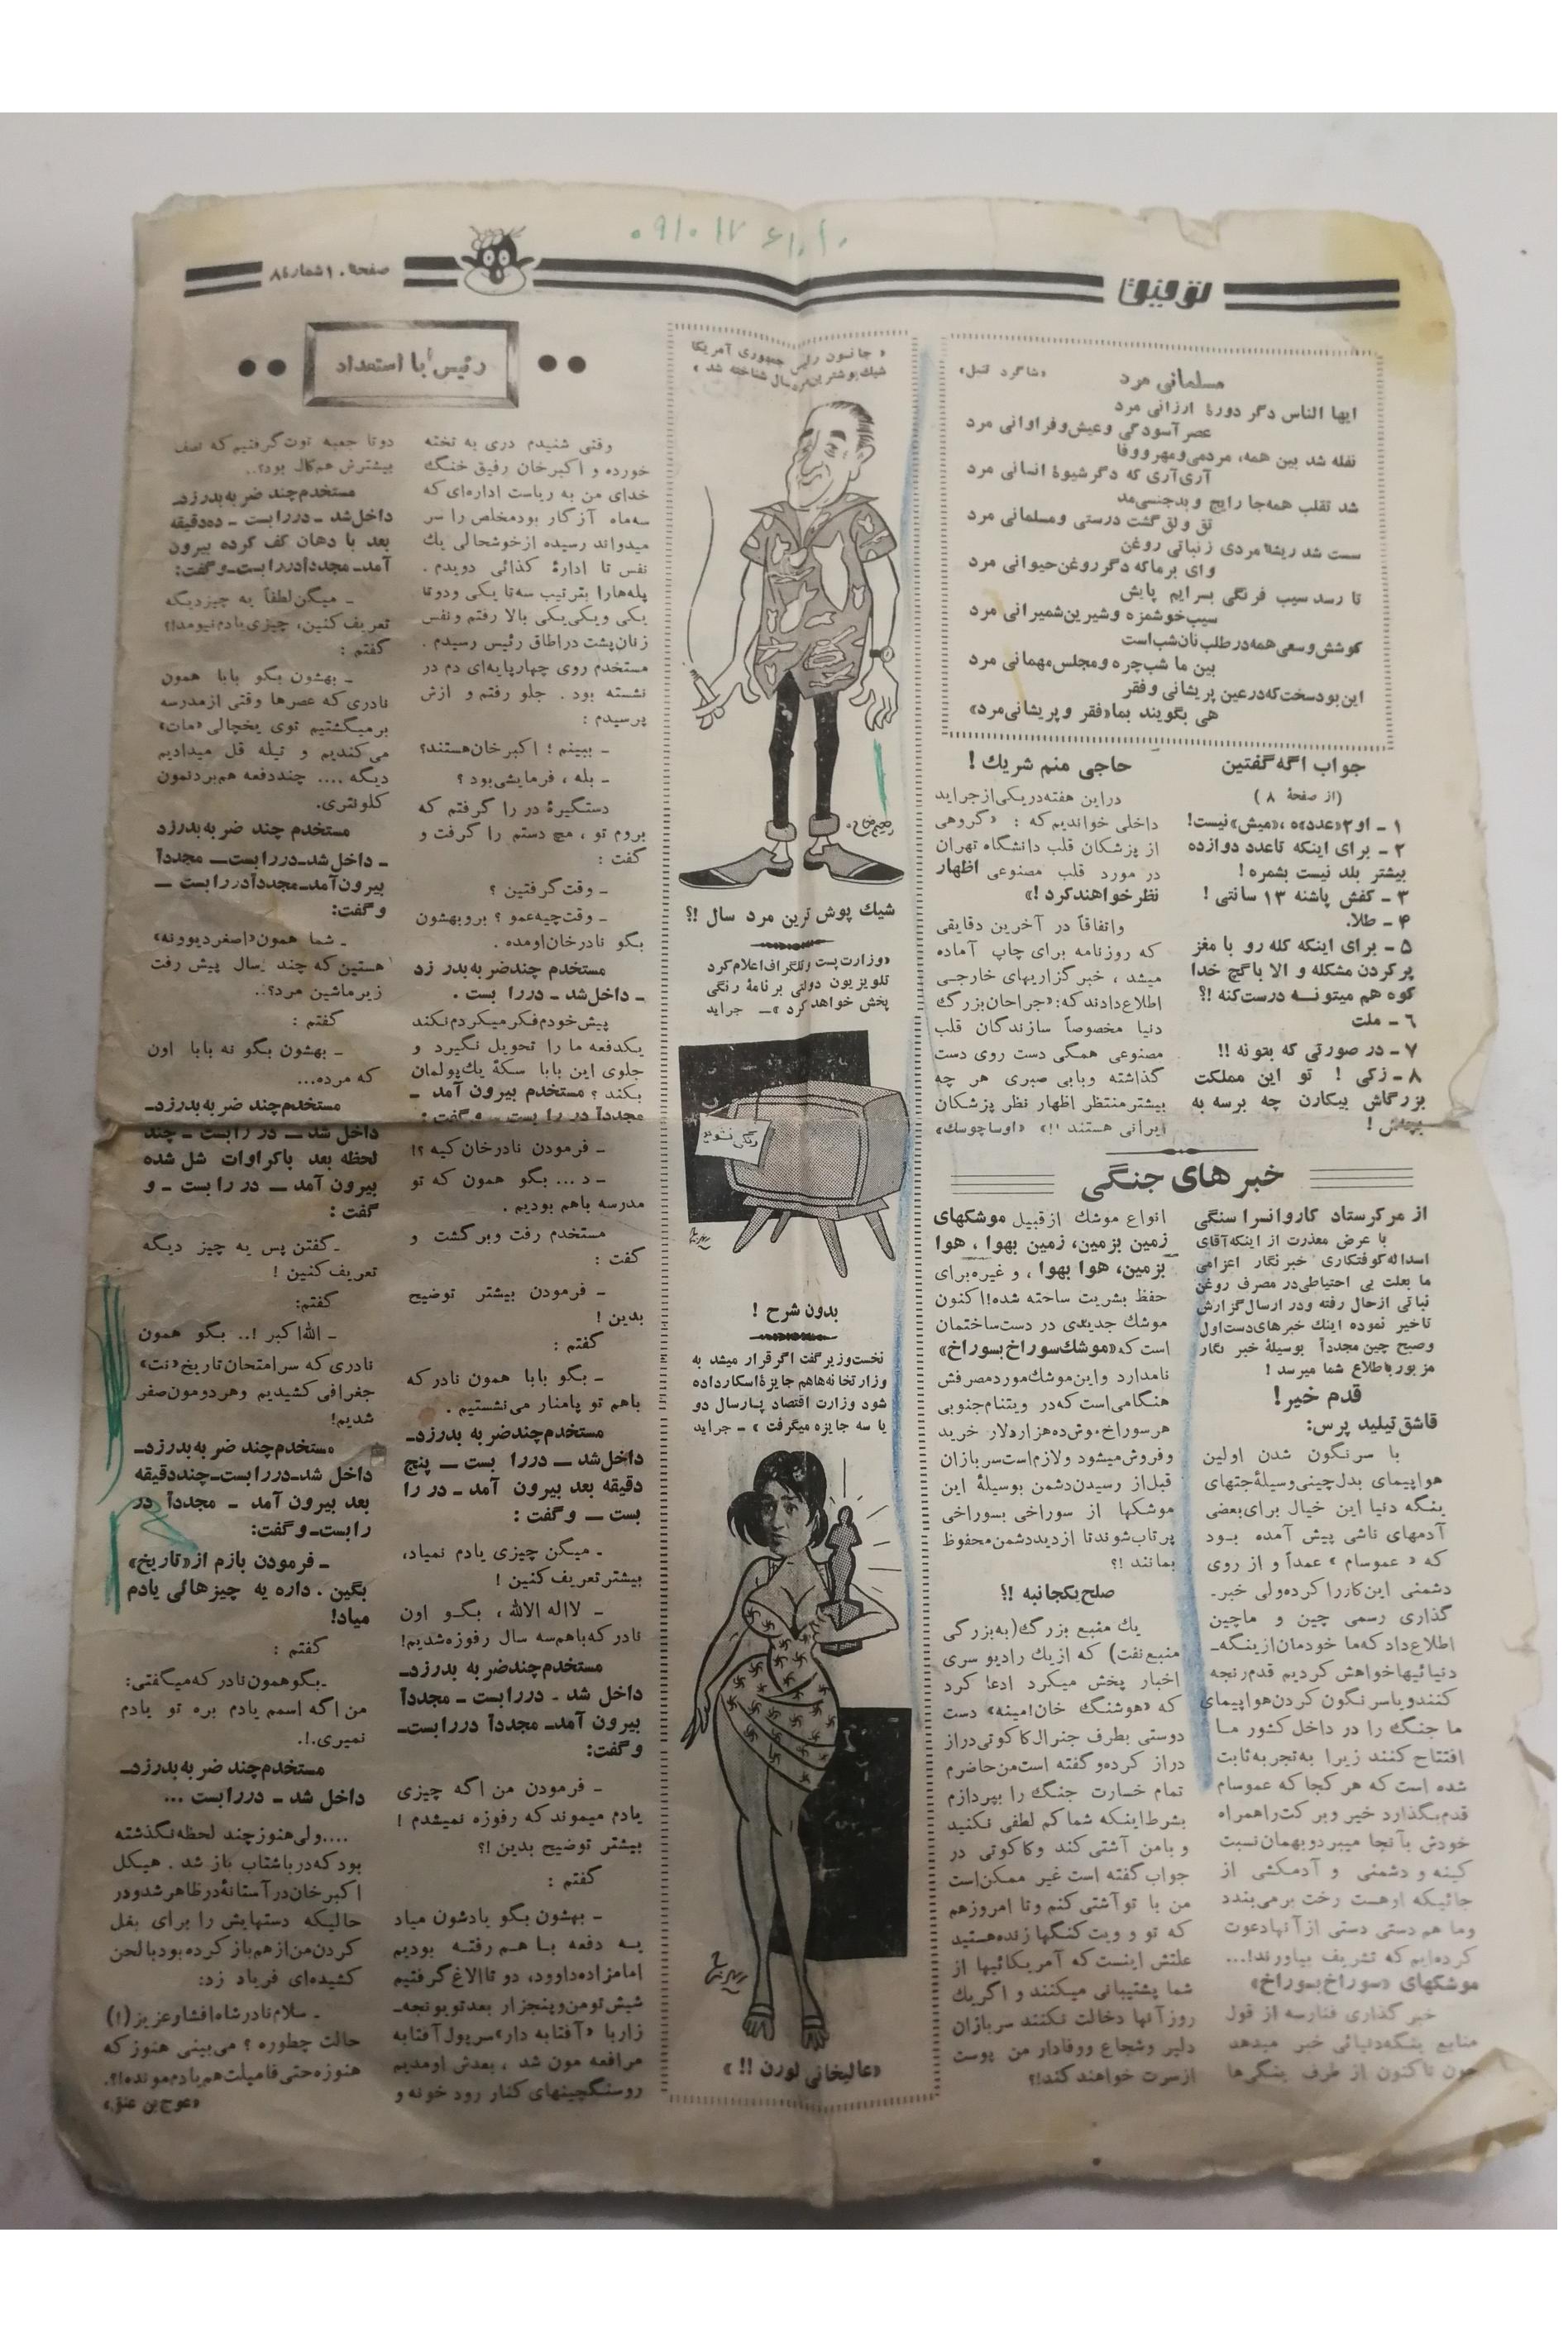 توفیق
صفحه ۱۰ شماره ۸٤
مسلمانی مرد
«شاگرد تنبل»
ایها الناس دگر دورهٔ ارزانی مرد
عصر آسودگی وعیش‌وفراوانی مرد
نفله شد بین همه، مردمی‌ومهرووفا
آری‌آری که دگرشیوهٔ انسانی مرد
شد تقلب همه‌جا رایج و بدجنسی‌مد
تق و لق گشت درستی ومسلمانی مرد
سست شد ریشهٔ مردی زنباتی روغن
وای برماکه دگرروغن‌حیوانی مرد
تا رسد سیب فرنگی بسرایم پایش
سیب‌خوشمزه وشیرین‌شمیرانی مرد
کوشش‌وسعی همه‌درطلب‌نان‌شب‌است
بین ما شب‌چره ومجلس‌مهمانی مرد
این‌بودسخت‌که‌درعین پریشانی وفقر
هی بگویند بما«فقر وپریشانی‌مرد»
جواب اگه گفتین
(از صفحهٔ ۸)
۱ - او۲«عدد»ه ،«میش»نیست!
۲ - برای اینکه تاعدد دوازده
بیشتر بلد نیست بشمره!
۳ - کفش پاشنه ۱۳ سانتی!
۴ - طلا.
۵ - برای اینکه کله رو با مغز
پرکردن مشکله و الا باگچ خدا
کوه هم میتونه درست‌کنه !؟
٦ - ملت
۷ - در صورتی که بتونه !!
۸ - زکی ! تو این مملکت
بزرگاش بیکارن چه برسه به
بچه‌ش!
حاجی منم شریك !
دراین هفته‌دریکی‌ازجراید
داخلی خواندیم‌که : «گروهی
از پزشکان قلب دانشگاه تهران
در مورد قلب مصنوعی اظهار
نظرخواهندکرد !»
واتفاقاً در آخرین دقایقی
که روزنامه برای چاپ آماده
میشد ، خبرگزاریهای خارجی
اطلاع‌دادند که:«جراحان‌بزرگ
دنیا مخصوصاً سازندگان قلب
مصنوعی همگی دست روی دست
گذاشته وبابی صبری هر چه
بیشترمنتظر اظهار نظر پزشکان
ایرانی هستند !!» «اوساچوسك»
خبرهای جنگی
از مرکزستاد کاروانسرا سنگی
با عرض معذرت از اینکه‌آقای
اسداله‌کوفتکاری خبرنگار اعزامی
ما بعلت بی احتیاطی‌در مصرف روغن
نباتی ازحال رفته ودر ارسال‌گزارش
تاخیر نموده اینك خبرهای‌دست‌اول
وصیح چین مجدداً بوسیلهٔ خبر نگار
مزبورباطلاع شما میرسد !
قدم خیر!
قاشق تیلید پرس:
با سرنگون شدن اولین
هواپیمای بدل‌چینی‌وسیلهٔ‌جتهای
ینگه دنیا این خیال برای‌بعضی
آدمهای ناشی پیش آمده بود
که « عموسام » عمداً و از روی
دشمنی این‌کارراکرده‌ولی خبر-
گذاری رسمی چین و ماچین
اطلاع‌دادکه‌ما خودمان‌ازینگه-
دنیائیهاخواهش‌کردیم قدم‌رنجه
کنندوباسرنگون کردن‌هواپیمای
ما جنگ را در داخل کشور ما
افتتاح کنند زیرا به‌تجربه‌ثابت
شده است‌که هر کجا که عموسام
قدم‌بگذارد خیر وبرکت‌راهمراه
خودش بآنجا میبردوبهمان‌نسبت
کینه و دشمنی و آدمکشی از
جائیکه اوهست رخت برمی‌بندد
وما هم دستی دستی از آنهادعوت
کرده‌ایم که تشریف بیاورند!...
موشکهای «سوراخ‌بسوراخ»
خبر گذاری فنارسه از قول
منابع ینگه‌دنیائی خبر میدهد
چون تاکنون از طرف ینگی‌ها
انواع موشك ازقبیل موشکهای
زمین بزمین، زمین بهوا ، هوا
بزمین، هوا بهوا ، و غیره‌برای
حفظ بشریت ساخته شده!اکنون
موشك جدیدی در دست‌ساختمان
است که«موشك‌سوراخ‌بسوراخ»
نامدارد واین‌موشك‌موردمصرفش
هنگامی‌است‌که‌در ویتنام‌جنوبی
هرسوراخ‌موش‌ده‌هزاردلار خرید
وفروش‌میشود ولازم‌است‌سربازان
قبل‌از رسیدن‌دشمن بوسیلهٔ این
موشکها از سوراخی بسوراخی
پرتاب‌شوندتا ازدیددشمن‌محفوظ
بمانند !؟
صلح‌یکجانبه !؟
یك منبع بزرگ(به‌بزرگی
منبع‌نفت) که ازیك رادیو سری
اخبار پخش میکرد ادعا کرد
که «هوشنگ خان‌امینه» دست
دوستی بطرف جنرال‌کاکوتی‌دراز
دراز کرده‌وگفته است‌من‌حاضرم
تمام خسارت جنگ را بپردازم
بشرط‌اینکه شماکم لطفی نکنید
وبامن آشتی کند وکاکوتی در
جواب‌گفته است غیر ممکن‌است
من با توآشتی‌کنم وتا امروزهم
که تو و ویت‌کنگها زنده‌هستید
علتش اینست که آمریکائیها از
شما پشتیبانی میکنند و اگریك
روزآنها دخالت نکنند سربازان
دلیر وشجاع ووفادار من پوست
ازسرت خواهند کند!؟
« جانسون رئیس جمهوری آمریکا
شیك‌پوشترین‌مردسال شناخته شد »
شیك پوش ترین مرد سال !؟
«وزارت‌پست وتلگراف‌اعلام‌کرد
تلویزیون دولتی برنامهٔ رنگی
پخش خواهدکرد »- جراید
بدون شرح !
نخست‌وزیرگفت اگرقرار میشد به
وزارتخانه‌هاهم جایزهٔ‌اسکارداده
شود وزارت اقتصاد پارسال دو
یا سه جایزه میگرفت » - جراید
«عالیخانی لورن !! »
رئیس با استعداد
وقتی شنیدم دری به تخته
خورده و اکبرخان رفیق خنگ
خدای من به ریاست اداره‌ای که
سه‌ماه آزگار بودمخلص را سر
میدواند رسیده ازخوشحالی یك
نفس تا ادارهٔ کذائی دویدم .
پله‌هارا بترتیب سه‌تا یکی ودوتا
یکی ویکی‌یکی بالا رفتم ونفس
زنان‌پشت دراطاق رئیس رسیدم .
مستخدم روی چهارپایه‌ای دم در
نشسته بود . جلو رفتم و ازش
پرسیدم :
- ببینم ؛ اکبرخان‌هستند؟
- بله ، فرمایشی‌بود ؟
دستگیرهٔ در را گرفتم که
بروم تو ، مچ دستم را گرفت و
گفت :
- وقت‌گرفتین ؟
- وقت‌چیه‌عمو ؟ بروبهشون
بگو نادرخان‌اومده .
مستخدم چندضربه بدر زد
- داخل‌شد - دررا بست .
پیش‌خودم‌فکرمیکردم‌نکند
یکدفعه ما را تحویل نگیرد و
جلوی این بابا سکهٔ یك‌پولمان
بکند ؟ مستخدم بیرون آمد -
مجدداً در را بست - وگفت :
- فرمودن نادرخان کیه ؟!
- د ... بگو همون که تو
مدرسه باهم بودیم .
مستخدم رفت وبرگشت و
گفت :
- فرمودن بیشتر توضیح
بدین !
گفتم :
- بگو بابا همون نادرکه
باهم تو پامنار می‌نشستیم .
مستخدم‌چندضربه بدرزد-
داخل‌شد - دررا بست - پنج
دقیقه بعد بیرون آمد - در را
بست - وگفت :
- میگن چیزی یادم نمیاد،
بیشتر تعریف کنین !
- لااله الاالله ، بگو اون
نادرکه‌باهم‌سه سال رفوزه‌شدیم!
مستخدم‌چندضربه بدرزد-
داخل شد - دررابست - مجدداً
بیرون آمد- مجدداً دررابست-
وگفت:
- فرمودن من اگه چیزی
یادم میموندکه رفوزه نمیشدم !
بیشتر توضیح بدین !؟
گفتم :
- بهشون بگو یادشون میاد
یه دفعه باهم رفته بودیم
امامزاده‌داوود، دوتاالاغ‌گرفتیم
شیش‌تومن‌وپنجزار بعدتویونجه-
زاربا «آفتابه دار»سرپول‌آفتابه
مرافعه مون شد ، بعدش اومدیم
روسنگچینهای کنار رود خونه و
دوتا جعبه توت‌گرفتیم‌که نصف
بیشترش هم‌کال بود؟..
مستخدم‌چند ضربه‌بدرزد-
داخل‌شد - دررا بست - ده‌دقیقه
بعد با دهان کف کرده بیرون
آمد- مجدداًدررا بست-وگفت:
- میگن‌لطفاً یه چیزدیگه
تعریف‌کنین، چیزی‌یادم‌نیومد!!
گفتم :
- بهشون بگو بابا همون
نادری‌که عصرها وقتی ازمدرسه
برمیگشتیم توی یخچالی «مات»
می‌کندیم و تیله قل میدادیم
دیگه .... چنددفعه هم‌بردنمون
کلونتری.
مستخدم چند ضربه‌بدرزد
- داخل‌شد-دررابست- مجدداً
بیرون‌آمد-مجدداًدررابست -
وگفت:
- شما همون«اصغردیوونه»
هستین‌که چند سال پیش رفت
زیرماشین مرد؟..
گفتم :
- بهشون بگو نه بابا اون
که مرده...
مستخدم چند ضربه‌بدرزد-
داخل شد - در رابست - چند
لحظه بعد باکراوات شل شده
بیرون آمد - در رابست - و
گفت :
-گفتن پس یه چیز دیگه
تعریف‌کنین !
گفتم:
- الله‌اکبر !.. بگو همون
نادری که سرامتحان‌تاریخ«نت»
جغرافی‌کشیدیم وهردومون‌صفر
شدیم!
مستخدم‌چند ضربه‌بدرزد-
داخل شد-دررابست-چنددقیقه
بعد بیرون آمد - مجدداً در
رابست-وگفت:
- فرمودن بازم از«تاریخ»
بگین . داره یه چیزهائی یادم
میاد!
گفتم :
-بگوهمون‌نادرکه‌میگفتی:
من اگه اسمم یادم بره تو یادم
نمیری.!.
مستخدم‌چند ضربه‌بدرزد-
داخل شد - دررابست ...
....ولی‌هنوزچند لحظه‌نگذشته
بودکه‌درباشتاب باز شد . هیکل
اکبرخان‌درآستانهٔ‌درظاهرشدودر
حالیکه دستهایش را برای بغل
کردن‌من‌ازهم‌بازکرده‌بودبالحن
کشیده‌ای فریاد زد:
- سلام‌نادرشاه‌افشاروعزیز(!)
حالت چطوره ؟ می‌بینی هنوزکه
هنوزه‌حتی‌فامیلت‌هم‌یادم‌مونده!؟.
«عوج‌بن عنق»